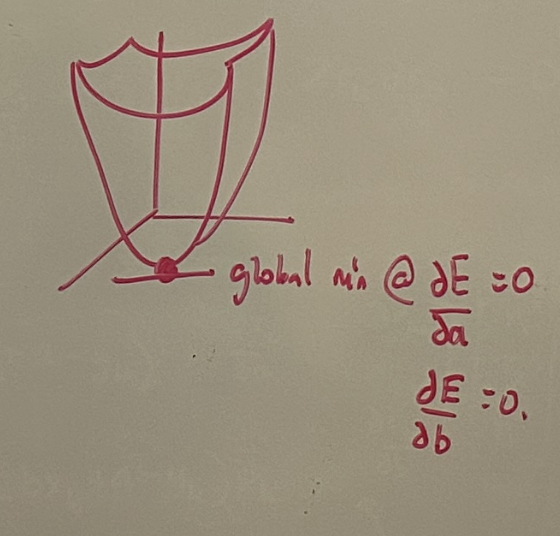 global min @ ∂E/∂a = 0
∂E/∂b = 0.